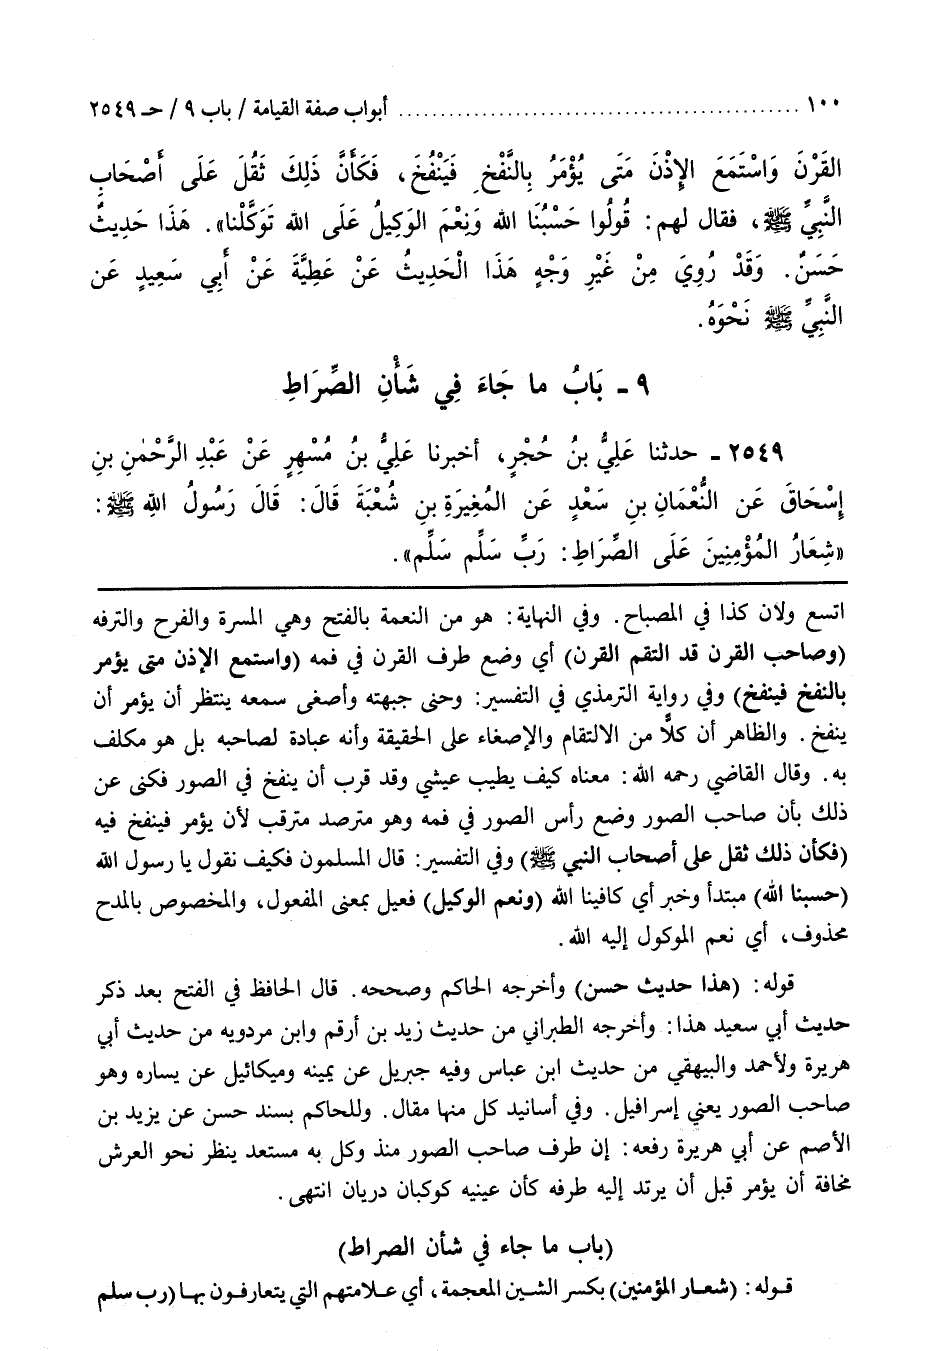 ١٠٠ ................................................ أبواب صفة القيامة / باب ٩ / حـ ٢٥٤٩
القَرْنَ وَاسْتَمَعَ الإِذْنَ مَتَى يُؤْمَرُ بِالنَّفْخِ فَيَنْفُخَ، فَكَأَنَّ ذَلِكَ ثَقُلَ عَلَى أَصْحَابِ
النَّبِيِّ ﷺ، فقال لهم: قُولُوا حَسْبُنَا الله وَنِعْمَ الوَكِيلُ عَلَى الله تَوَكَّلْنا». هَذَا حَدِيثٌ
حَسَنٌ. وَقَدْ رُوِيَ مِنْ غَيْرِ وَجْهٍ هَذَا الْحَدِيثُ عَنْ عَطِيَّةَ عَنْ أَبِي سَعِيدٍ عَن
النَّبِيِّ ﷺ نَحْوَهُ.
٩ ـ بَابُ ما جَاءَ فِي شَأْنِ الصِّرَاطِ
٢٥٤٩ ـ حدثنا عَلِيُّ بنُ حُجْرٍ، أخبرنا عَلِيُّ بنُ مُسْهِرٍ عَنْ عَبْدِ الرَّحْمٰنِ بنِ
إِسْحَاقَ عَنِ النُّعْمَانِ بنِ سَعْدٍ عَنِ المُغِيرَةِ بنِ شُعْبَةَ قَالَ: قَالَ رَسُولُ اللهِ ﷺ:
«شِعَارُ المُؤْمِنِينَ عَلَى الصِّرَاطِ: رَبِّ سَلِّم سَلِّم».
اتسع ولان كذا في المصباح. وفي النهاية: هو من النعمة بالفتح وهي المسرة والفرح والترفه
(وصاحب القرن قد التقم القرن) أي وضع طرف القرن في فمه (واستمع الإذن متى يؤمر
بالنفخ فينفخ) وفي رواية الترمذي في التفسير: وحنى جبهته وأصغى سمعه ينتظر أن يؤمر أن
ينفخ. والظاهر أن كلًّا من الالتقام والإصغاء على الحقيقة وأنه عبادة لصاحبه بل هو مكلف
به. وقال القاضي رحمه الله: معناه كيف يطيب عيشي وقد قرب أن ينفخ في الصور فكنى عن
ذلك بأن صاحب الصور وضع رأس الصور في فمه وهو مترصد مترقب لأن يؤمر فينفخ فيه
(فكأن ذلك ثقل على أصحاب النبي ﷺ) وفي التفسير: قال المسلمون فكيف نقول يا رسول الله
(حسبنا الله) مبتدأ وخبر أي كافينا الله (ونعم الوكيل) فعيل بمعنى المفعول، والمخصوص بالمدح
محذوف، أي نعم الموكول إليه الله.
قوله: (هذا حديث حسن) وأخرجه الحاكم وصححه. قال الحافظ في الفتح بعد ذكر
حديث أبي سعيد هذا: وأخرجه الطبراني من حديث زيد بن أرقم وابن مردويه من حديث أبي
هريرة ولأحمد والبيهقي من حديث ابن عباس وفيه جبريل عن يمينه وميكائيل عن يساره وهو
صاحب الصور يعني إسرافيل. وفي أسانيد كل منها مقال. وللحاكم بسند حسن عن يزيد بن
الأصم عن أبي هريرة رفعه: إن طرف صاحب الصور منذ وكل به مستعد ينظر نحو العرش
مخافة أن يؤمر قبل أن يرتد إليه طرفه كأن عينيه كوكبان دريان انتهى.
(باب ما جاء في شأن الصراط)
قوله: (شعار المؤمنين) بكسر الشين المعجمة، أي علامتهم التي يتعارفون بها (رب سلم